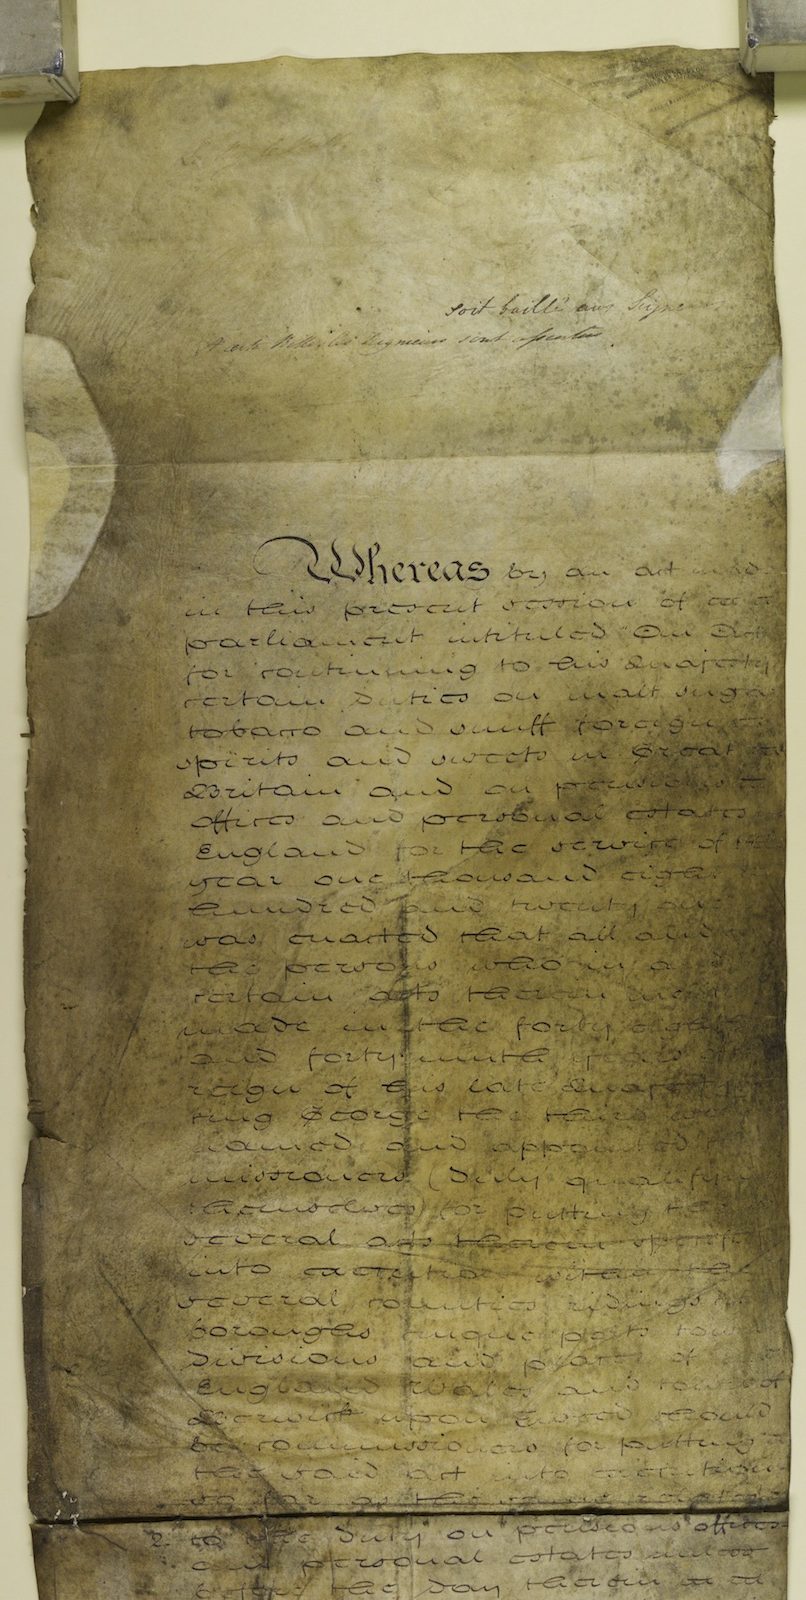 soit baillé aux Seigneurs
A ceste Bille les Seigneurs sont assentus.
Whereas by an act made
in this present session of
parliament intituled "An Act
for continuing to his Majesty
certain duties on malt sugar
tobacco and snuff foreign
spirits and sweets in Great
Britain and on pensions
offices and personal estates
England for the service of the
year one thousand eight
hundred and twenty one
was enacted that all and
the persons who in and
certain acts therein
made in the forty eighth
and forty ninth years of
reign of his late Majesty
King George the third were
named and appointed
missioners (duly qualifying
themselves) for putting the
several acts therein specified
into execution within the
several counties ridings
boroughs cinque ports towns
divisions and places of
England Wales and town of
Berwick upon Tweed should
be commissioners for putting
the said act into execution
so far as the same
2 to the duty on pensions offices
and personal estates unless
before the day therein